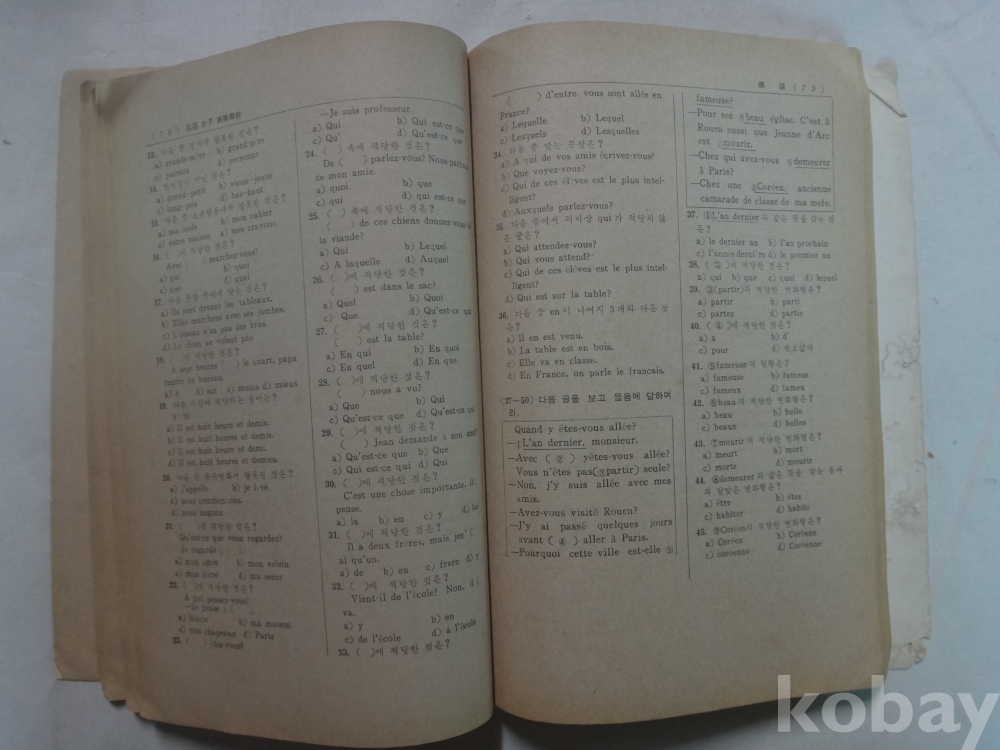 (78) 女子 高等學校
13. 다음 중 잘못된 것은?
a) grande-mère b) grand-père
c) parents d) personne
a) grand-petit b) vieux-jeune
c) long-peu d) bas-haut
a) ma école b) mon cahier
c) votre maison a) mes crayons
16. ( )에 적당한 것은?
Avec ( ) marchez-vous?
a) qui b) quoi
c) que d) quel
17. 다음 문장 중에서 맞는 것은?
a) Ils sont devant les tableaux.
b) Elles marchent avec ses jambes.
c) L'oiseau n'as pas des bras.
d) Le chien ne volent pas
18. ( )에 적당한 것은?
A sept heures ( ) le quart, papa
rentre du bureau.
a) à b) sur c) moins d) mieux
8:30
a) Il est huit heure et demie.
b) Il est huit heures et demie.
c) Il est huit heure et demi.
d) Il est huit heures et demies.
a) j'appelle b) je lève
c) nous commençons
d) nous nagons
21. ( )에 적당한 것은?
Qu'est-ce que vous regardez?
Je regarde ( ).
a) mon amie b) mon voisin
c) mon livre d) ma sœur
22. ( )에 적당한 것은?
A qui pensez-vous?
—Je pense à ( ).
a) Marie b) ma maison
c) mes chapeaux d) Paris
—Je suis professeur
a) Qui b) Qui est-ce que
c) Qu' d) Qu'est-ce que
24. ( ) 속에 적당한 것은?
De ( ) parlez-vous? Nous parlons
de mon amie.
a) quoi b) que
c) qui d) qui est-ce que
25. ( ) 속에 적당한 것은?
( ) de ces chiens donnez-vous de
la viande?
a) Qui b) Lequel
c) A laquelle d) Auquel
26. ( )에 적당한 것은?
( ) est dans le sac?
a) Quel b) Quoi
c) Que d) Qu'est-ce
27. ( )에 적당한 것은?
( ) est la table?
a) En qui b) En quoi
c) En quel d) En que
28. ( )에 적당한 것은?
( ) nous a vu?
a) Que b) Qui
c) Qu'est-ce que d) Qu'est-ce qui
29. ( )에 적당한 것은?
( ) Jean demande à son ami?
a) Qu'est-ce que b) Que
c) Qui est-ce qui d) Qui
30. ( )에 적당한 것은?
C'est une chose importante, il
pense.
a) la b) en c) y d)
31. ( )에 적당한 것은?
Il a deux frères, mais jen' (
ai qu'un.
a) de b) en c) frere d)
32. ( )에 적당한 것은?
Vient-il de l'école? Non, il (
va.
a) y b) en
c) de l'école d) à l'école
33. ( )에 적당한 것은?
佛 語 (79)
( ) d'entre vous sont allés en
France?
a) Lequelle b) Lequel
c) Lesquels d) Lesquelles
34. 다음 중 맞는 문장은?
a) A qui de vos amis écrivez-vous?
b) Que voyez-vous?
c) Qui de ces élèves est le plus intel-
ligent?
d) Auxquels parlez-vous?
35. 다음 중에서 의미상 qui가 적당치 않
은 글은?
a) Qui attendez-vous?
b) Qui vous attend?
c) Qui de ces élèves est le plus intel-
ligent?
d) Qui est sur la table?
36. 다음 중 en이 나머지 3개와 다른 것
은?
a) Il en est venu.
b) La table est en bois.
c) Elle va en classe.
d) En France, on parle le francais.
(37~50) 다음 글을 보고 물음에 답하여
라.
Quand y êtes-vous allée?
—①L'an dernier, monsieur.
—Avec ( ② ) yêtes-vous allée?
Vous n'êtes pas(③partir) seule?
—Non, j'y suis allée avec mes
amis.
—Avez-vous visité Rouen?
—J'y ai passé quelques jours
avant ( ④ ) aller à Paris.
—Pourquoi cette ville est-elle ⑤
fameuse?
—Pour ses ⑥beau église. C'est à
Rouen aussi que Jeanne d'Arc
est ⑦mourir.
—Chez qui avez-vous ⑧demeurer
à Paris?
—Chez une ⑨Coréen, ancienne
camarade de classe de ma mère.
37. ①L'an dernier의 같은 뜻을 갖는 것은
?
a) le dernier an b) l'an prochain
c) l'année dernière d) le premier an
38. ( ② )에 적당한 것은?
a) qui b) que c) quoi d) lequel
39. ③(partir)의 적당한 변화형은?
a) partir b) parti
c) partez d) partie
40. ( ④ )에 적당한 것은?
a) a b) d'
c) pour d) 필요없다
41. ⑤fameuse의 원형은?
a) fameuse b) fameus
c) fameux d) fameu
42. ⑥beau의 적당한 변화형은?
a) beau b) belle
c) beaux d) belles
43. ⑦mourir의 적당한 변화형은?
a) meurt b) mort
c) morte d) mourir
44. ⑧demeurer와 같은 뜻을 갖는 동사
의 알맞은 변화형은?
a) être b) êtes
c) habiter d) habité
45. ⑨Coréen의 적당한 변화형은?
a) Coréen b) Coréene
c) coréenne d) Coréenne
kobay